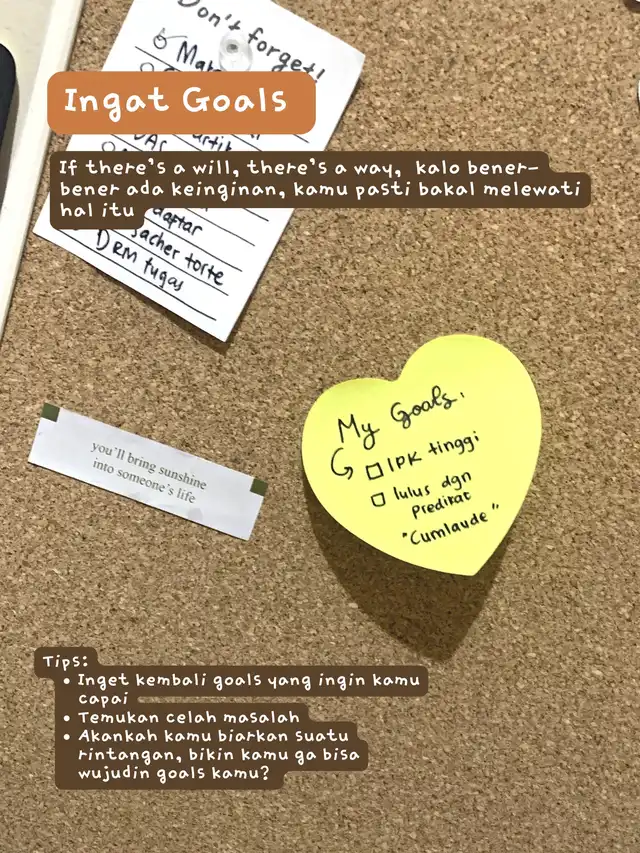 Don't forget!
Ingat Goals
If there's a will, there's a way, kalo bener-
bener ada keinginan, kamu pasti bakal melewati
hal itu
sacher torte
DRM tugas
My Goals:
IPK tinggi
lulus dgn
Predikat
"Cumlaude"
you'll bring sunshine
into someone's life
Tips:
• Inget kembali goals yang ingin kamu
capai
• Temukan celah masalah
• Akankah kamu biarkan suatu
rintangan, bikin kamu ga bisa
wujudin goals kamu?